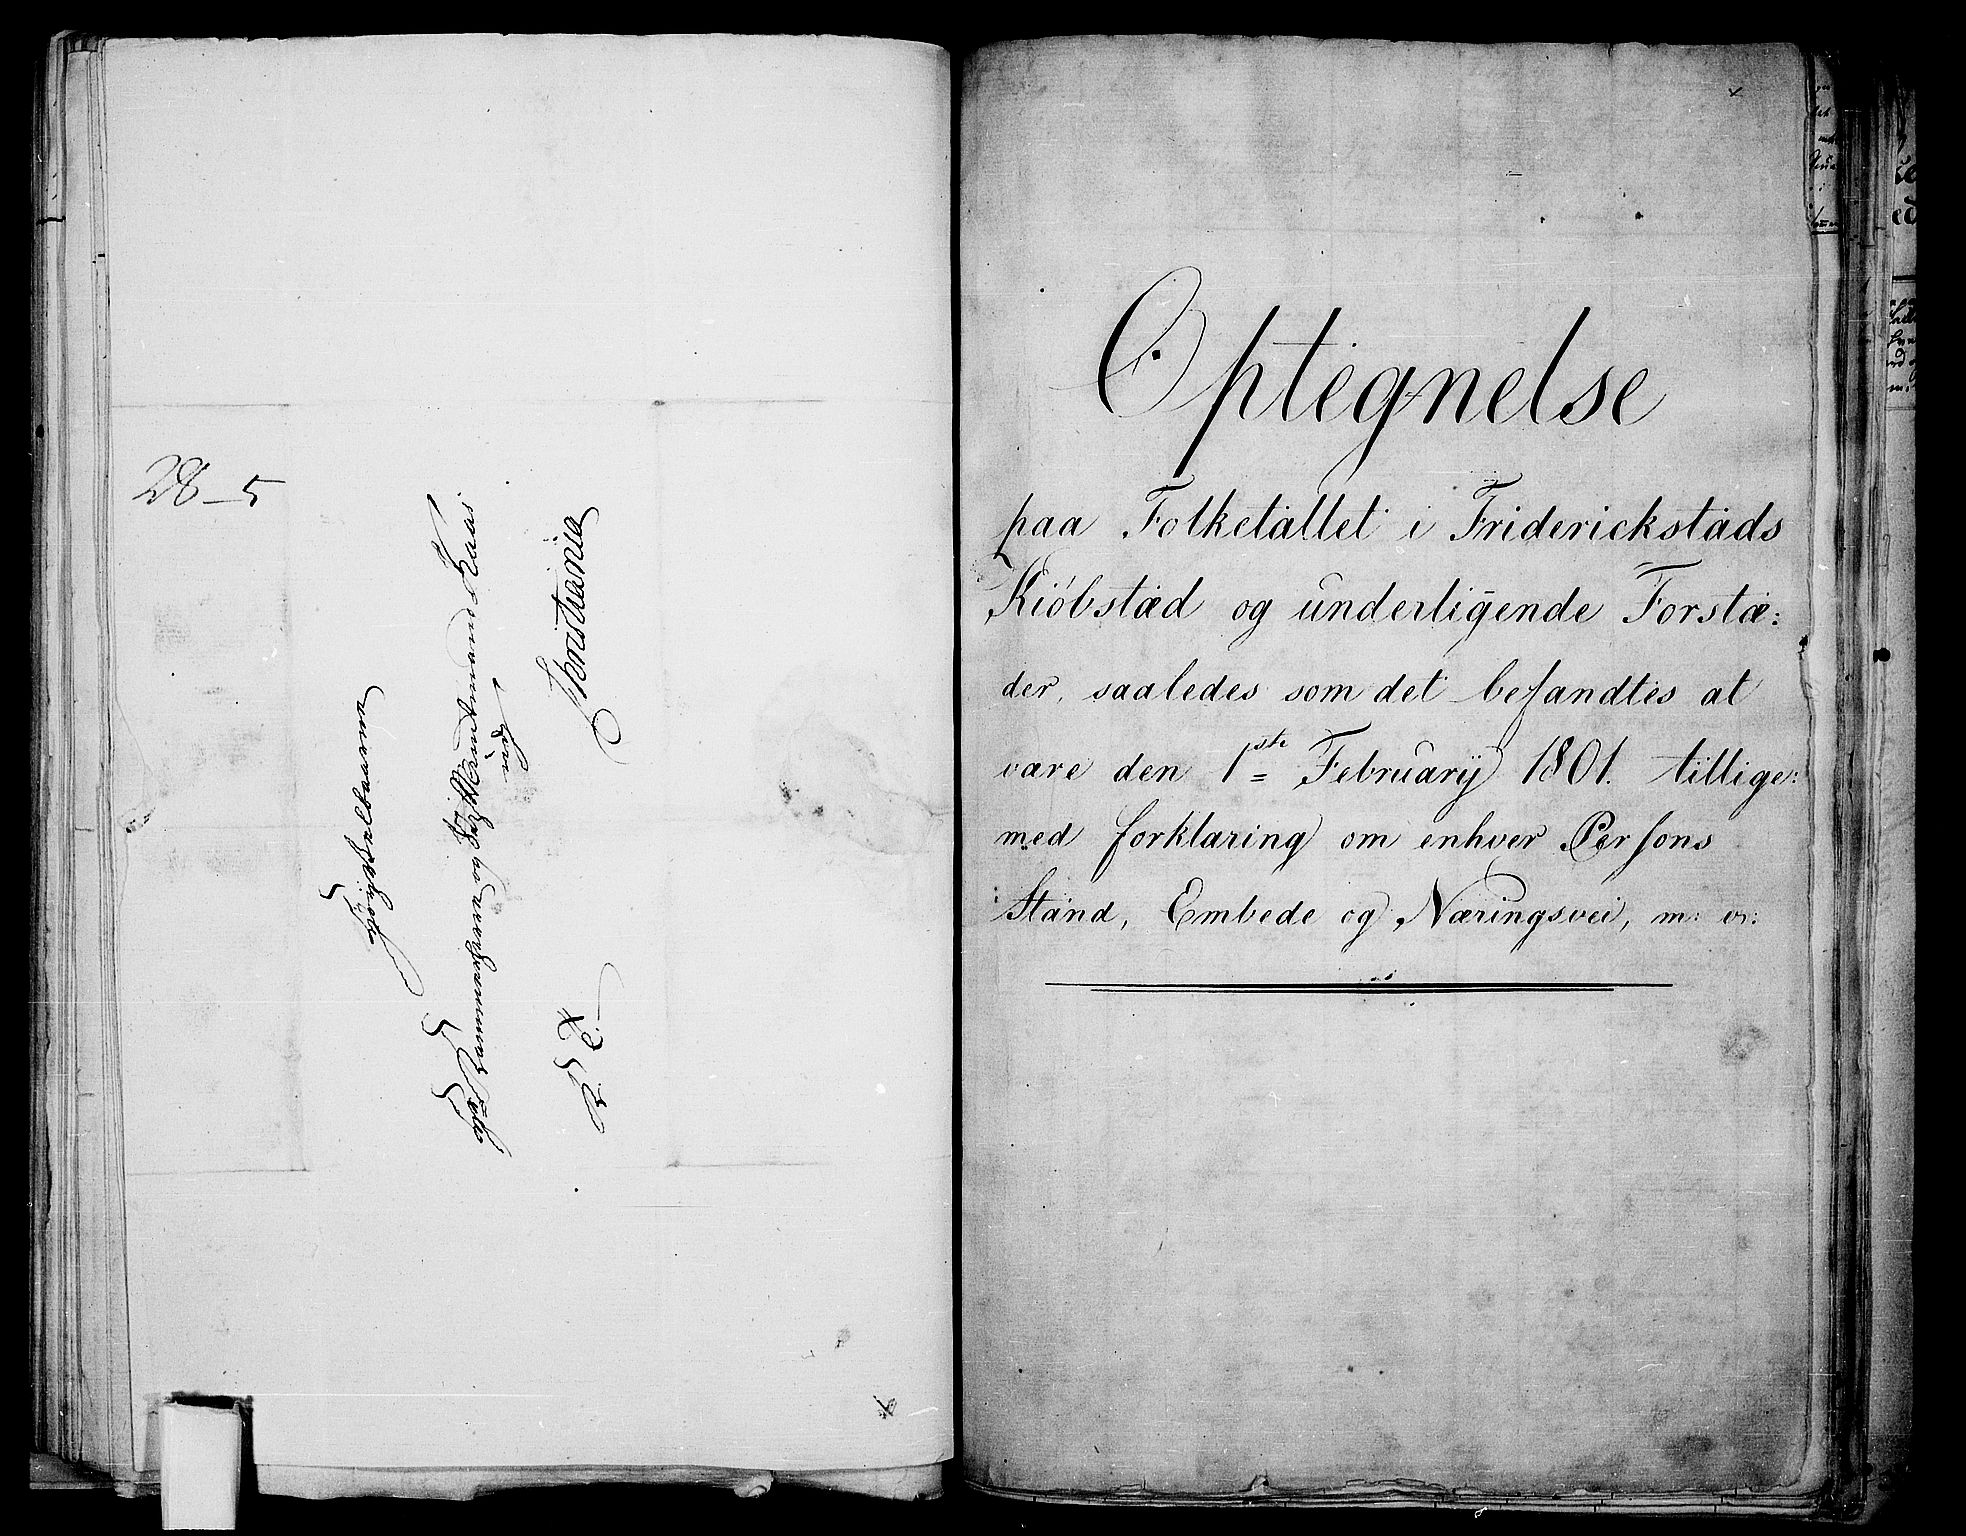 28-5
Høyvelbaarne
Hr= Kammerherre og Stiftamtmand Kaas
udj
Christiania
K. T.
Optegnelse
paa Folketallet i Friderickstads
Kiöbstæd og underligende Forstæ:
der, saaledes som det befandtes at
være den 1ste= Februarij 1801. tillige:
med forklaring om enhver Persons
Stand, Embede og Næringsvei, m: v: